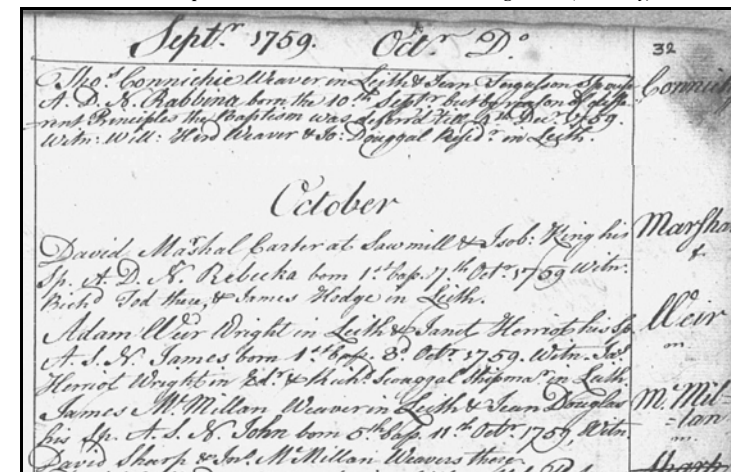 Septr. 1759. Octr. Do.
32
Thos. Connichie Weaver in Leith & Jean Fergusson Spouse
A. D. N. Rabbina born the 10th Septr. but by reason of diffe
rent Principles the Baptism was deferr'd till Decr. 1759.
Witn: Will: Herd Weaver & Jo: Douggal Residr. in Leith.
October
David Marshal Carter at Sawmill & Isob: King his
Marshal
Sp. A. D. N. Rebecka born 1st bap. 7th Octr. 1759 Witn.
Richd. Tod there, & James Hodge in Leith.
Adam Weir Wright in Leith & Janet Herriot his Sp.
Weir
A. S. N. James born 1st bap. 3d. Octr. 1759. Witn. Jas.
Herriot Wright in Edr. & Richd. Scouggal Shipmar. in Leith.
James McMillan Weaver in Leith & Jean Douglas
McMil=
=lan
his Sp. A. S. N. John born 5th bap. 11th Octr. 1759, Witn.
David Sharp & Jno. McMillan Weavers there.